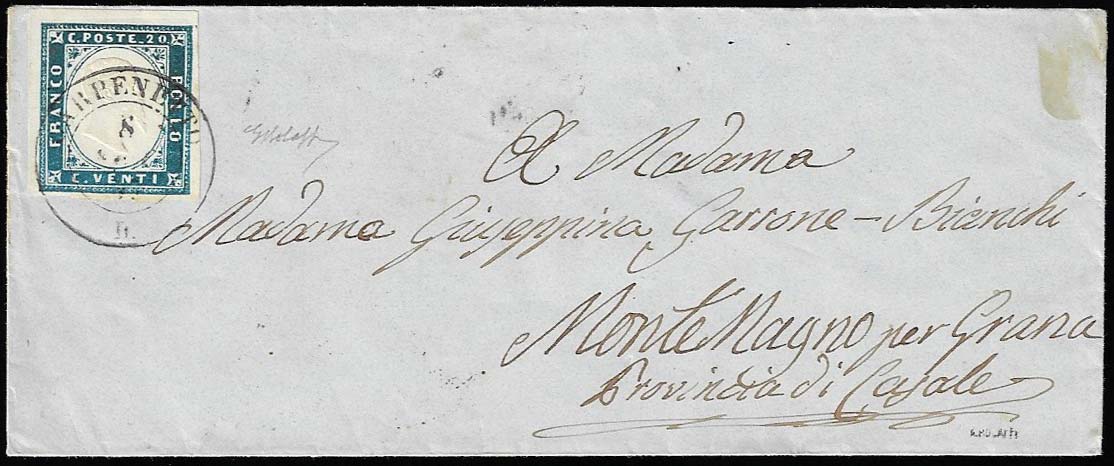 C. POSTE. 20.
FRANCO
BOLLO
C. VENTI
8
A Madama
Madama Giuseppina Garrone-Bianchi
Monte Magno per Grana
Provincia di Casale